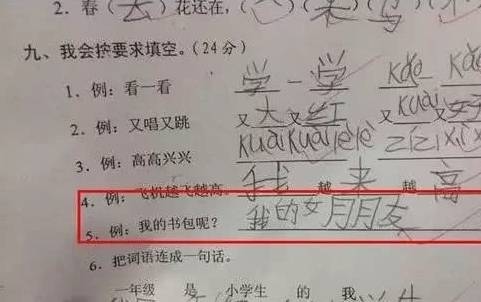 2. 春(去)花还在,( )(来)(鸟)(
九、我会按要求填空。(24分)
1. 例：看一看 学一学 kǎo kǎo
2. 例：又唱又跳 又大又红 又kuài又
3. 例：高高兴兴 kuàikuàilèlè
4. 例：飞机越飞越高。 我越来越高
5. 例：我的书包呢？ 我的女月朋友
6. 把词语连成一句话。
一年级 是 小学生 的 我